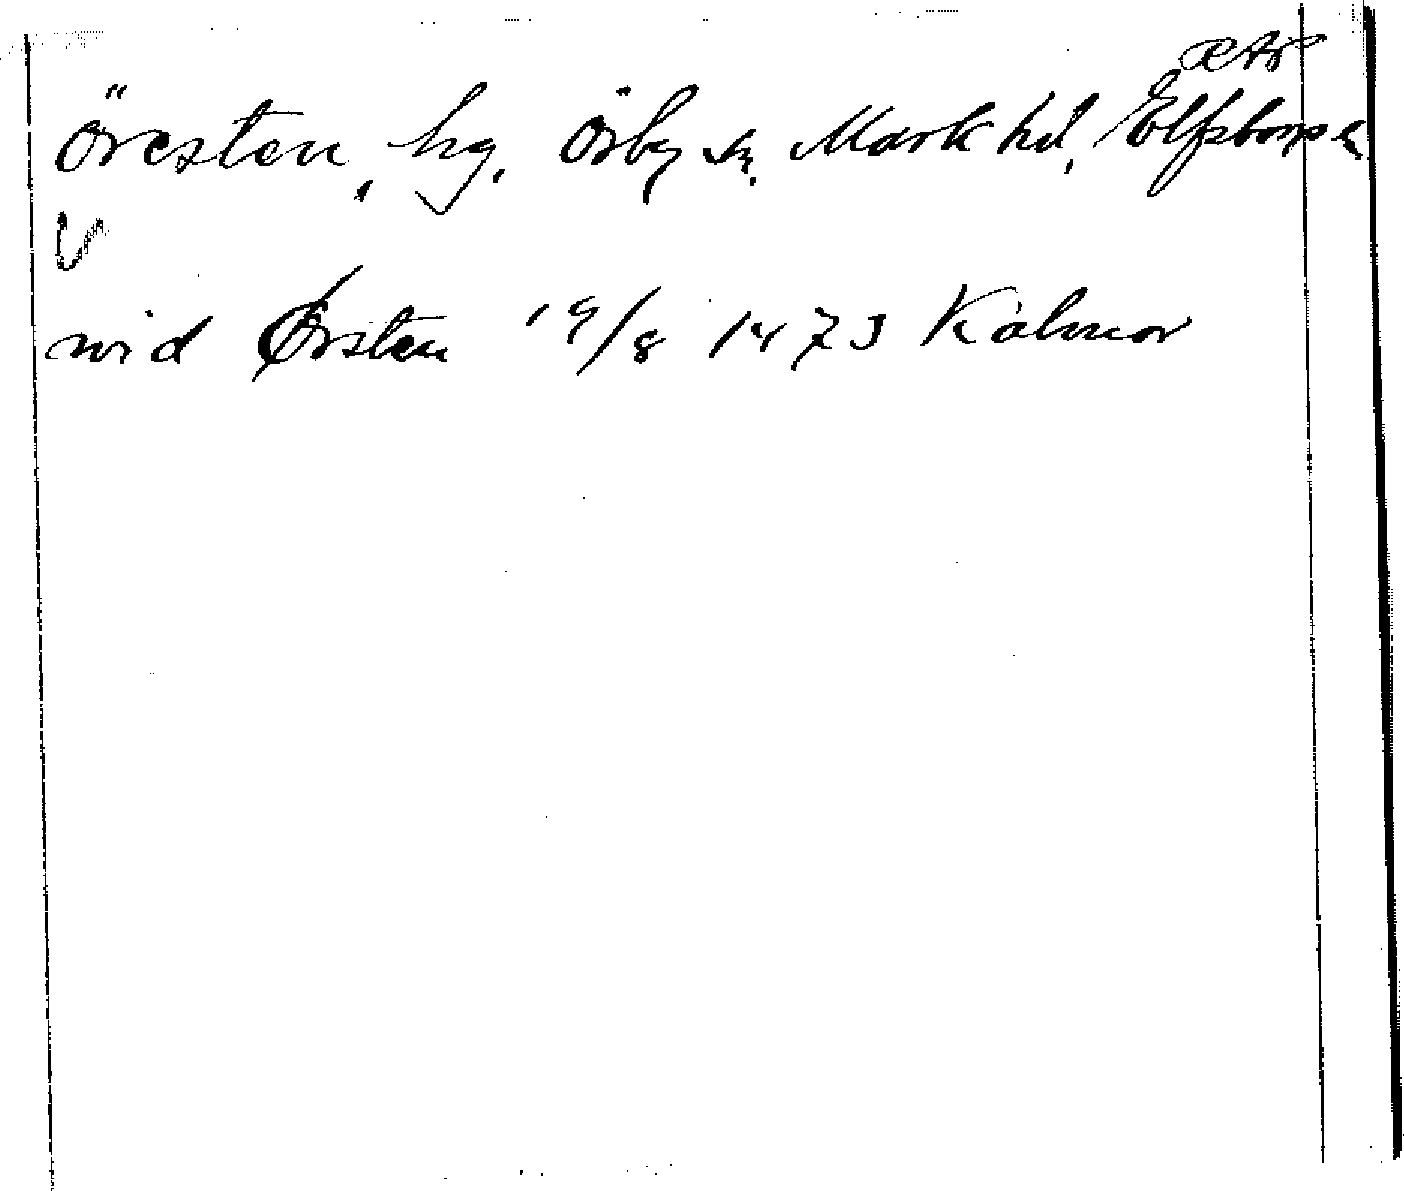 Öresten, hg, Örby sn. Mark hd, Elfsborgs l.
vid Ørsten 19/8 1473 Kalmar